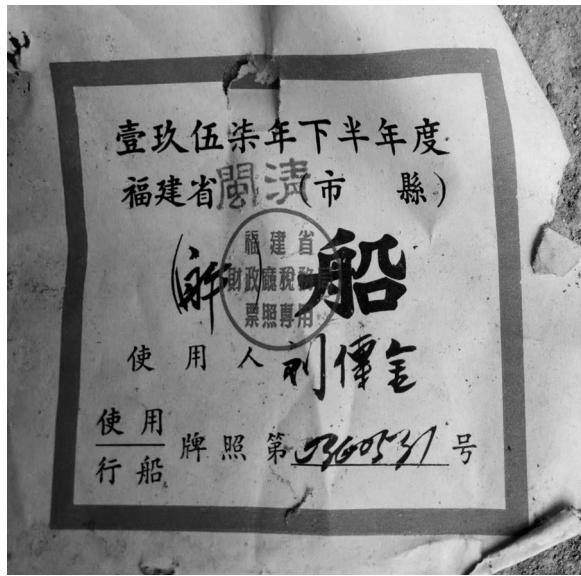 壹玖伍柒年下半年度
福建省閩清(市 縣)
福建省
財政廳稅務局
票照專用
( )船
使用人 刘傳金
使用
行船
牌照第 0360531 号